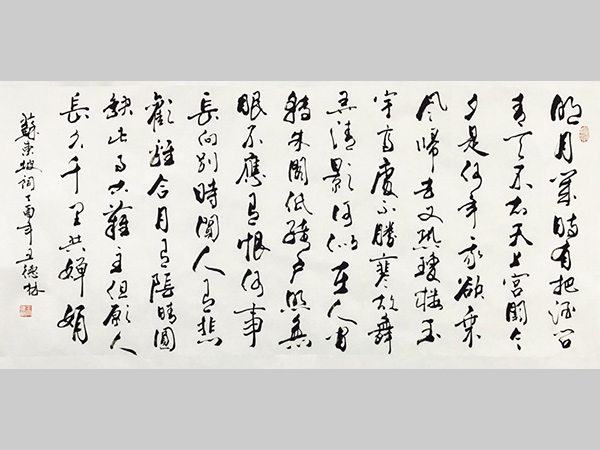 明月幾時有把酒问
青天不知天上宫闕今
夕是何年我欲乘
风歸去又恐瓊楼玉
宇高處不勝寒起舞
弄清影何似在人间
轉朱閣低綺户照無
眠不應有恨何事
長向别時圓人有悲
歡離合月有陰晴圓
缺此事古難全但願人
長久千里共嬋娟
蘇東坡词丁酉年王德林